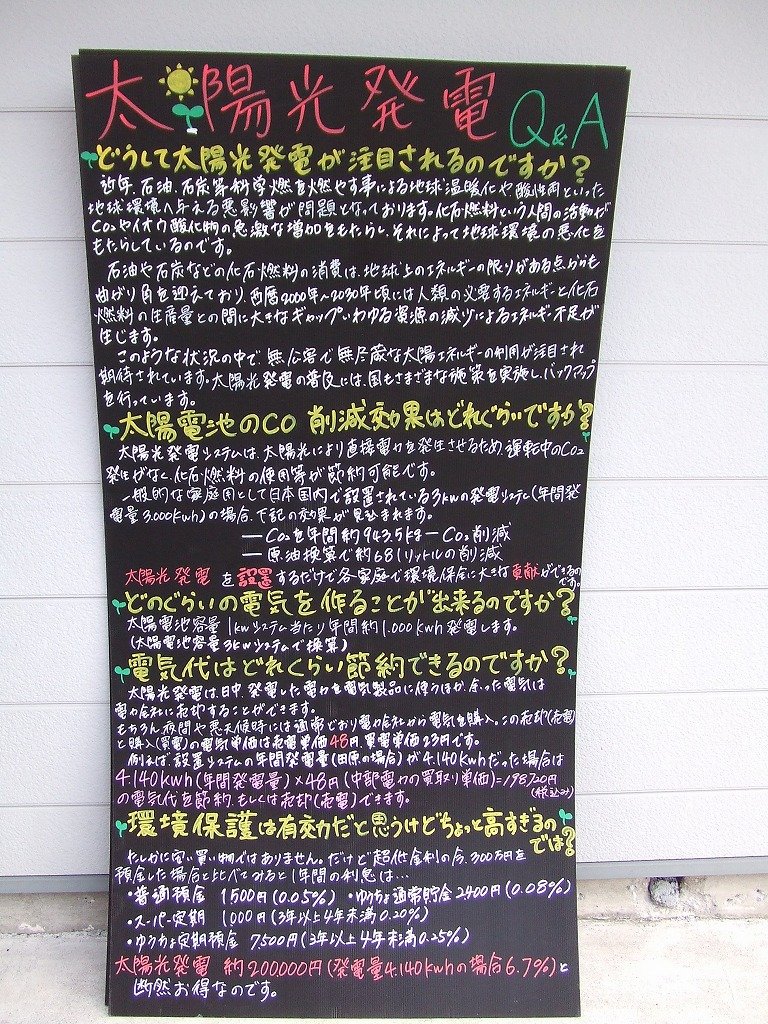 太陽光発電 Q&A
どうして太陽光発電が注目されるのですか?
近年、石油、石炭等科学燃を燃やす事による地球温暖化や酸性雨といった
地球環境へ与える悪影響が問題となっております。化石燃料という人間の活動が
CO₂やイオウ酸化物の急激な増加をもたらし、それによって地球環境の悪化を
もたらしているのです。
石油や石炭などの化石燃料の消費は、地球上のエネルギーの限りがある点からも
曲がり角を迎えており、西暦2000年~2030年頃には人類の必要するエネルギーと化石
燃料の生産量との間に大きなギャップ、いわゆる資源の減少によるエネルギー不足が
生じます。
このような状況の中で、無公害で無尽蔵な太陽エネルギーの利用が注目され
期待されています。太陽光発電の普及には、国もさまざまな施策を実施し、バックアップ
を行っています。
太陽電池のCO 削減効果はどれぐらいですか?
太陽光発電システムは、太陽光により直接電力を発生させるため、運転中のCO₂
発生がなく、化石燃料の使用等が節約可能です。
一般的な家庭用として日本国内で設置されている3kwの発電システム(年間発
電量3,000kwh)の場合、下記の効果が見込まれます。
―CO₂を年間約943.5kg―CO₂削減
―原油換算で約681リットルの削減
太陽光発電 を設置するだけで各家庭で環境保全に大きな貢献ができるの
です。
どのぐらいの電気を作ることが出来るのですか?
太陽電池容量1kwシステム当たり年間約1.000kwh発電します。
(太陽電池容量3kwシステムで換算)
電気代はどれくらい節約できるのですか?
太陽光発電は、日中、発電した電力を電気製品に使うほか、余った電気は
電力会社に売却することができます。
もちろん夜間や悪天候時には通常どおり電力会社から電気を購入。この売却(売電)
と購入(買電)の電気単価は売電単価48円、買電単価23円です。
例えば、設置システムの年間発電量(田原の場合)が4.140kwhだった場合は
4.140kwh(年間発電量)×48円(中部電力の買取り単価)=198720円
(税込み)
の電気代を節約、もしくは売却(売電)できます。
環境保護は有効だと思うけどちょっと高すぎるの
では?
たしかに安い買い物ではありません。だけど超低金利の今、300万円を
預金した場合と比べてみると1年間の利息は…
・普通預金 1500円(0.05%) ・ゆうちょ通常貯金2400円(0.08%)
・スーパー定期 1000円(3年以上4年未満0.20%)
・ゆうちょ定期預金 7500円(3年以上4年未満0.25%)
太陽光発電 約200000円(発電量4.140kwhの場合6.7%)と
断然お得なのです。